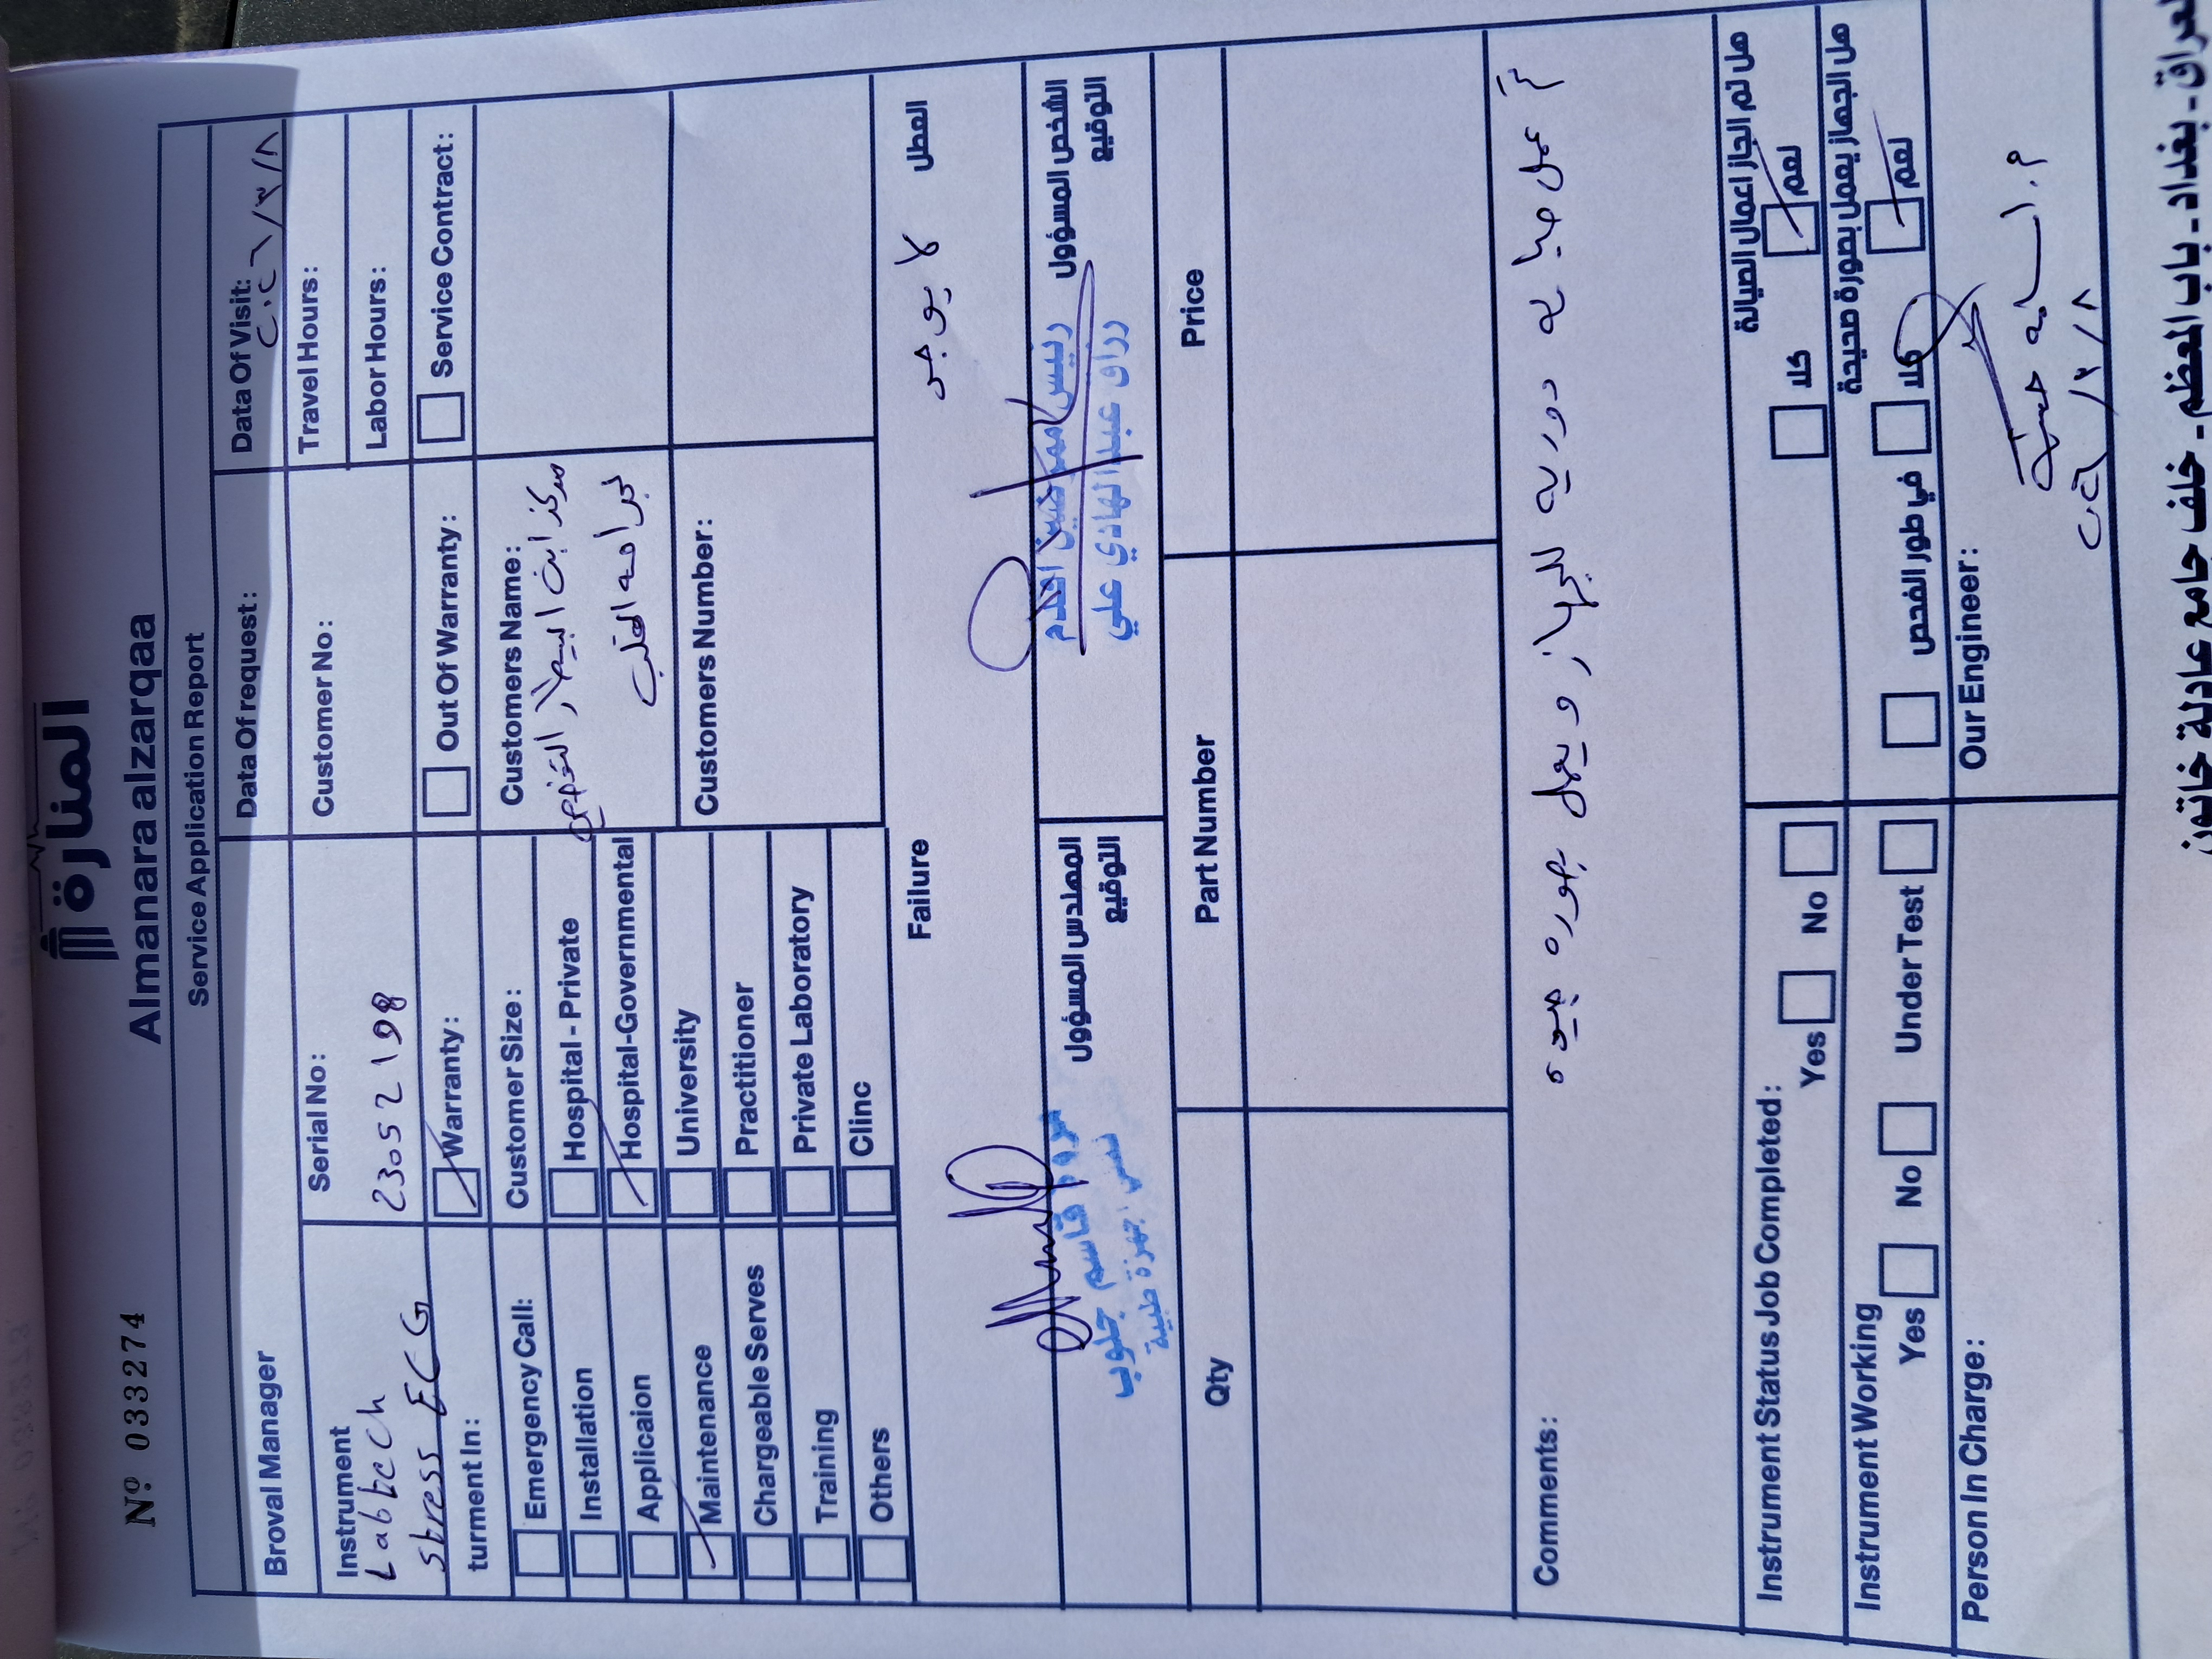 Nº 033274
المنارة
Almanara alzarqaa
Service Application Report
Broval Manager
Data Of request:
Data Of Visit:
٢٠٢٦/٣/٨
Instrument
Labtech
stress ECG
Serial No:
23052198
Customer No:
Travel Hours:
Labor Hours:
turment In:
Warranty:
Out Of Warranty:
Service Contract:
Emergency Call:
Installation
Applicaion
Maintenance
Chargeable Serves
Training
Others
Customer Size:
Hospital - Private
Hospital-Governmental
University
Practitioner
Private Laboratory
Clinc
Customers Name:
مركز ابن البيطار التخصصي
لجراحه القلب
Customers Number:
Failure
العطل
لا يوجد
المهندس المسؤول
التوقيع
قاسم جلوب
اجهزة طبية
الشخص المسؤول
التوقيع
رئيس ممرضين اقدم
رزاق عبد الهادي علي
Qty
Part Number
Price
Comments:
تم عمل صيانه دوريه للجهاز ويعمل بصوره جيده
Instrument Status Job Completed:
Yes
No
هل تم انجاز اعمال الصيانة
كلا
نعم
Instrument Working
Yes
No
Under Test
هل الجهاز يعمل بصورة صحيحة
في طور الفحص
كلا
نعم
Person In Charge:
Our Engineer:
٢٠٢٦/٣/٨
العراق - بغداد - باب المعظم -